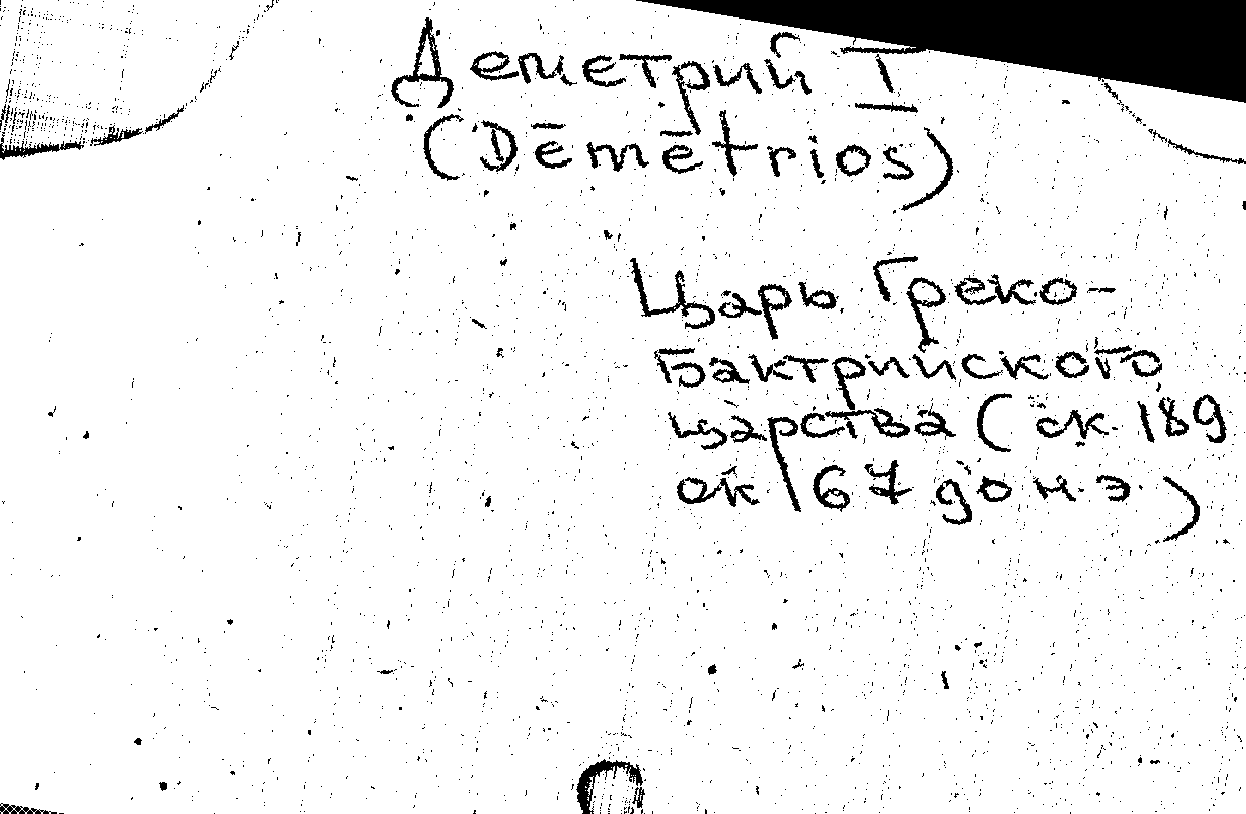 Деметрий I
(Dēmētrios)
Царь Греко-
Бактрийского
царства (ок. 189
ок. 167 до н. э.)